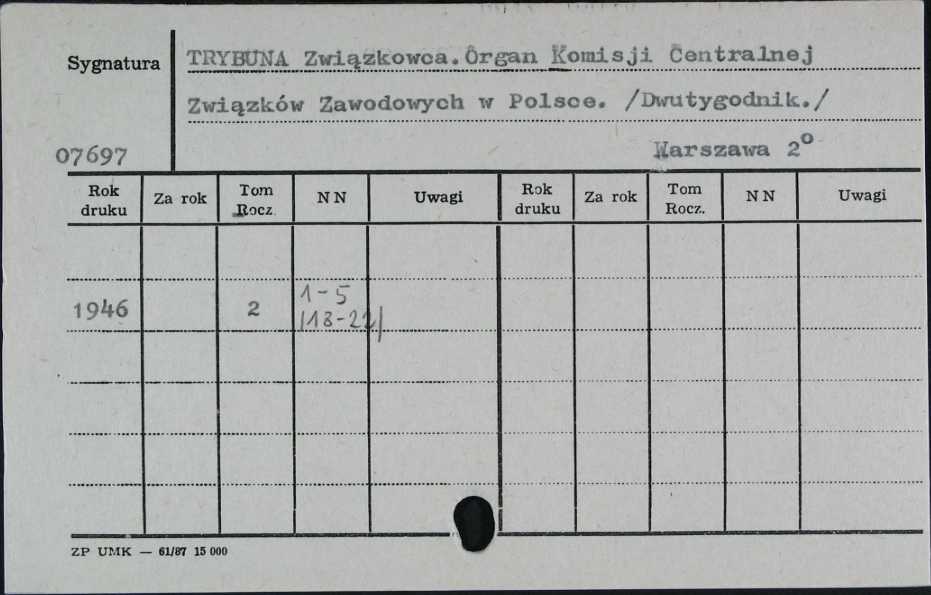 Sygnatura
TRYBUNA Związkowca. Organ Komisji Centralnej
Związków Zawodowych w Polsce. /Dwutygodnik./
07697
Warszawa 2⁰
Rok druku Za rok Tom Rocz. NN Uwagi Rok druku Za rok Tom Rocz. NN Uwagi
1946 2 1-5
/18-22/
ZP UMK — 61/87 15 000